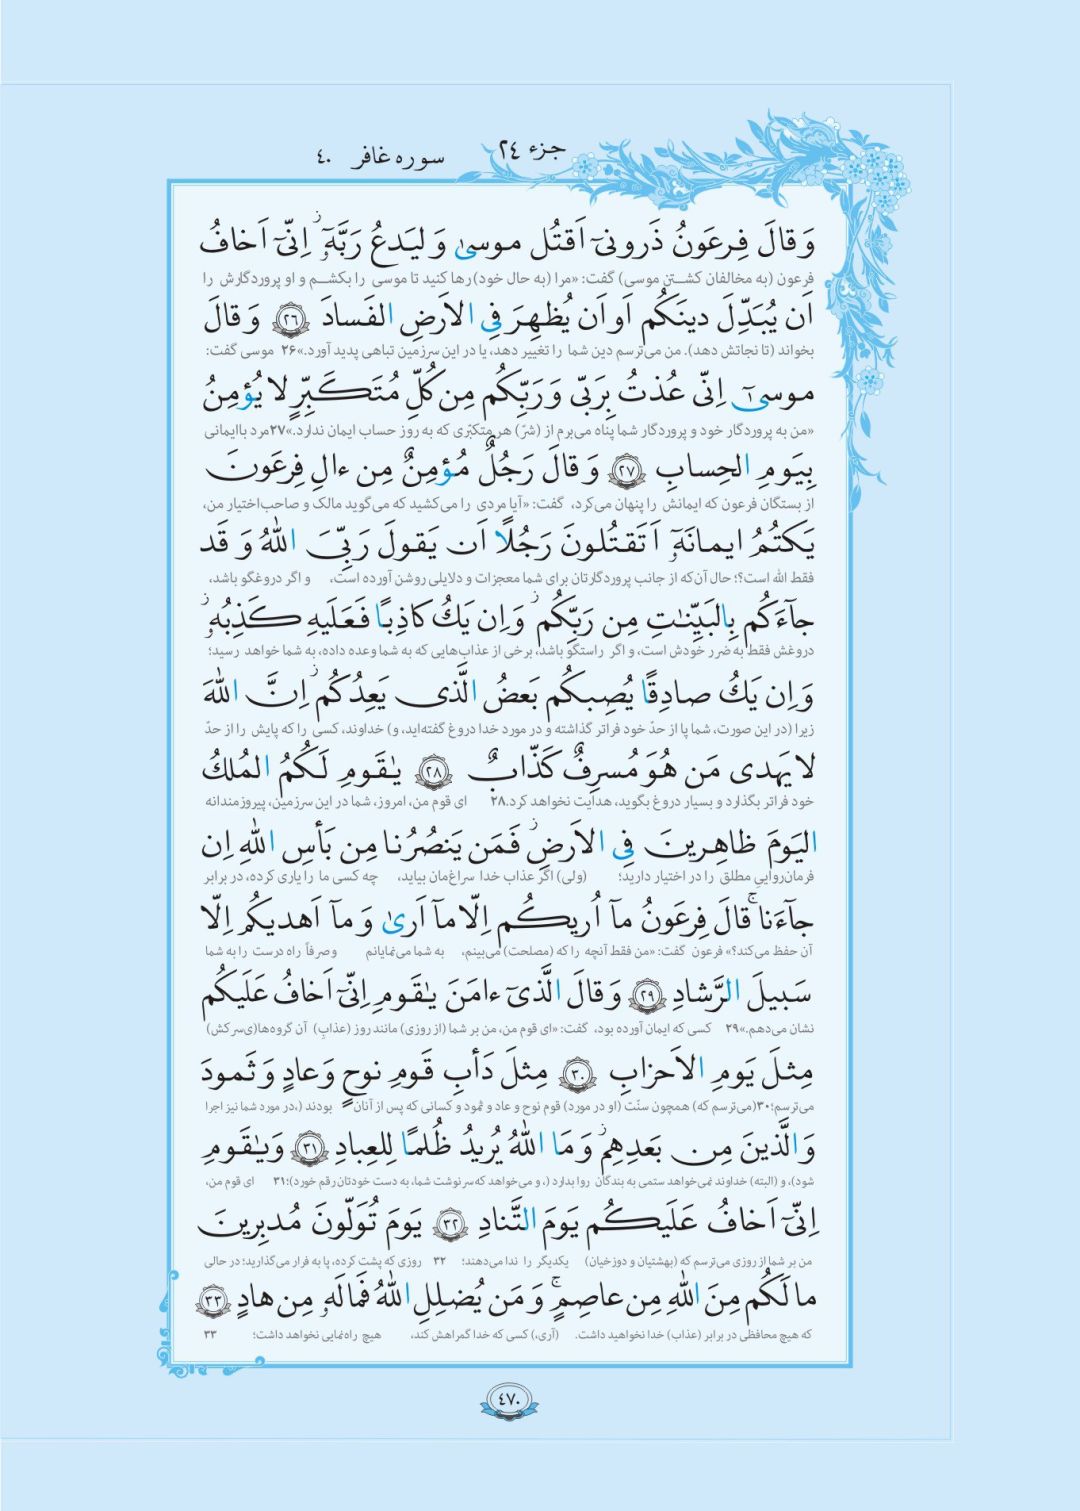 جزء ۲٤
سوره غافر ٤٠
وَ قالَ فِرعَونُ ذَرونیٓ اَقتُل موسیٰ وَ لیَدعُ رَبَّهٗٓ ۖ اِنّیٓ اَخافُ
فرعون (به مخالفان کشتن موسی) گفت: «مرا (به حال خود) رها کنید تا موسی را بکشم و او پروردگارش را
اَن یُبَدِّلَ دینَکُم اَو اَن یُظهِرَ فِی الاَرضِ الفَسادَ ﴿۲۶﴾ وَ قالَ
بخواند (تا نجاتش دهد). من می‌ترسم دین شما را تغییر دهد، یا در این سرزمین تباهی پدید آورد.» ۲۶ موسی گفت:
موسیٰٓ اِنّی عُذتُ بِرَبّی وَ رَبِّکُم مِن کُلِّ مُتَکَبِّرٍ لا یُؤمِنُ
«من به پروردگار خود و پروردگار شما پناه می‌برم از (شرّ) هر متکبّری که به روز حساب ایمان ندارد.» ۲۷ مرد باایمانی
بِیَومِ الحِسابِ ﴿۲۷﴾ وَ قالَ رَجُلٌ مُؤمِنٌ مِن ءالِ فِرعَونَ
از بستگان فرعون که ایمانش را پنهان می‌کرد، گفت: «آیا مردی را می‌کشید که می‌گوید مالک و صاحب‌اختیار من،
یَکتُمُ ایمانَهٗٓ اَتَقتُلونَ رَجُلًا اَن یَقولَ رَبِّیَ اللّٰهُ وَ قَد
فقط الله است؟! حال آن‌که از جانب پروردگارتان برای شما معجزات و دلایلی روشن آورده است، و اگر دروغگو باشد،
جآءَکُم بِالبَیِّنٰتِ مِن رَبِّکُم ۖ وَ اِن یَكُ کاذِبًا فَعَلَیهِ کَذِبُهٗ ۖ
دروغش فقط به ضرر خودش است، و اگر راستگو باشد، برخی از عذاب‌هایی که به شما وعده داده، به شما خواهد رسید؛
وَ اِن یَكُ صادِقًا یُصِبکُم بَعضُ الَّذی یَعِدُکُم ۖ اِنَّ اللّٰهَ
زیرا (در این صورت، شما پا از حدّ خود فراتر گذاشته و در مورد خدا دروغ گفته‌اید، و) خداوند، کسی را که پایش را از حدّ
لا یَهدی مَن هُوَ مُسرِفٌ کَذّابٌ ﴿۲۸﴾ یٰقَومِ لَکُمُ المُلكُ
خود فراتر بگذارد و بسیار دروغ بگوید، هدایت نخواهد کرد. ۲۸ ای قوم من، امروز، شما در این سرزمین، پیروزمندانه
الیَومَ ظاهِرینَ فِی الاَرضِ ۖ فَمَن یَنصُرُنا مِن بَأسِ اللّٰهِ اِن
فرمان‌روایی مطلق را در اختیار دارید؛ (ولی) اگر عذاب خدا سراغ‌مان بیاید، چه کسی ما را یاری کرده، در برابر
جآءَنا ۚ قالَ فِرعَونُ مآ اُریکُم اِلّا مآ اَریٰ وَ مآ اَهدیکُم اِلّا
آن حفظ می‌کند؟» فرعون گفت: «من فقط آنچه را که (مصلحت) می‌بینم، به شما می‌نمایانم و صرفاً راه درست را به شما
سَبیلَ الرَّشادِ ﴿۲۹﴾ وَ قالَ الَّذیٓ ءامَنَ یٰقَومِ اِنّیٓ اَخافُ عَلَیکُم
نشان می‌دهم.» ۲۹ کسی که ایمان آورده بود، گفت: «ای قوم من، من بر شما (از روزی) مانند روز (عذابِ) آن گروه‌ها(ی سرکش)
مِثلَ یَومِ الاَحزابِ ﴿۳۰﴾ مِثلَ دَأبِ قَومِ نوحٍ وَ عادٍ وَ ثَمودَ
می‌ترسم؛ ۳۰ (می‌ترسم که) همچون سنّت (او در مورد) قوم نوح و عاد و ثمود و کسانی که پس از آنان بودند (، در مورد شما نیز اجرا
وَ الَّذینَ مِن بَعدِهِم ۖ وَ مَا اللّٰهُ یُریدُ ظُلمًا لِلعِبادِ ﴿۳۱﴾ وَ یٰقَومِ
شود)، و (البته) خداوند نمی‌خواهد ستمی به بندگان روا بدارد (، و می‌خواهد که سرنوشت شما، به دست خودتان رقم خورد)؛ ۳۱ ای قوم من،
اِنّیٓ اَخافُ عَلَیکُم یَومَ التَّنادِ ﴿۳۲﴾ یَومَ تُوَلّونَ مُدبِرینَ
من بر شما از روزی می‌ترسم که (بهشتیان و دوزخیان) یکدیگر را ندا می‌دهند؛ ۳۲ روزی که پشت کرده، پا به فرار می‌گذارید؛ در حالی
ما لَکُم مِنَ اللّٰهِ مِن عاصِمٍ ۚ وَ مَن یُضلِلِ اللّٰهُ فَما لَهٗ مِن هادٍ ﴿۳۳﴾
که هیچ محافظی در برابر (عذاب) خدا نخواهید داشت. (آری،) کسی که خدا گمراهش کند، هیچ راه‌نمایی نخواهد داشت؛ ۳۳
٤٧٠